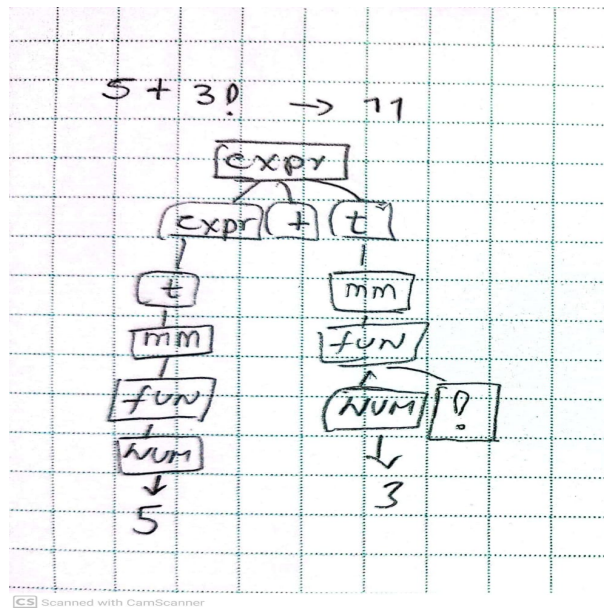 5 + 3! → 11
expr
expr + t
t mm
mm fun
fun NUM !
NUM 3
5
CS Scanned with CamScanner